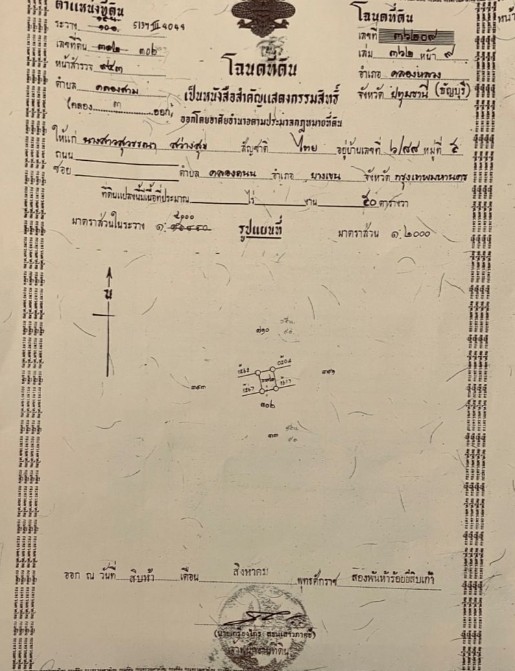 ตำแหน่งที่ดิน
โฉนดที่ดิน
ระวาง
เลขที่ดิน ๓๑๒ ๓๐๒
หน้าสำรวจ ๙๔๓
ตำบล คลองสาม
(คลอง ๓ ออก)
เลขที่ ๓๖๒๐๙
เล่ม ๓๖๒ หน้า ๙
อำเภอ คลองหลวง
จังหวัด ปทุมธานี (ธัญบุรี)
โฉนดที่ดิน
เป็นหนังสือสำคัญแสดงกรรมสิทธิ์
ออกโดยอาศัยอำนาจตามประมวลกฎหมายที่ดิน
ให้แก่ นางสาวสุวรรณา สว่างสุข สัญชาติ ไทย อยู่บ้านเลขที่ ๖/๙๙ หมู่ที่ ๕
ถนน
ซอย ตำบล คลองถนน อำเภอ บางเขน จังหวัด กรุงเทพมหานคร
ที่ดินแปลงนี้มีเนื้อที่ประมาณ ไร่ งาน ๕๐ ตารางวา
มาตราส่วนในระวาง ๑: ๔๐๐๐ รูปแผนที่ มาตราส่วน ๑:๒๐๐๐
น
๓๐๒
๓๓
ออก ณ วันที่ สิบห้า เดือน สิงหาคม พุทธศักราช สองพันห้าร้อยยี่สิบเก้า
เจ้าพนักงานที่ดิน